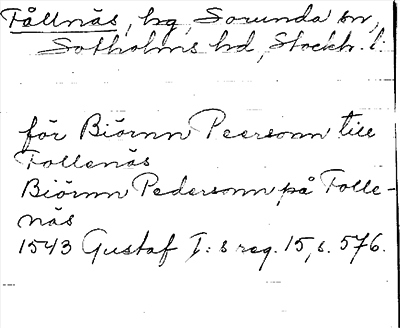 Fållnäs, hg, Sorunda sn,
Sotholms hd, Stockh. l.
för Biörnn Peersonn till
Follenäs
Biörnn Pedersonn på Folle-
näs
1543 Gustaf I:s reg. 15, s. 576.